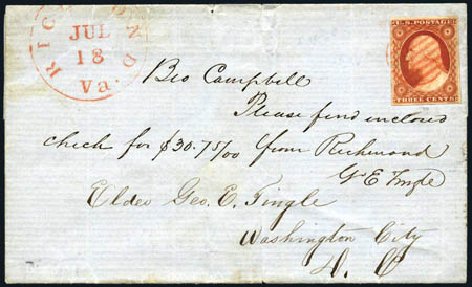 RICHMOND
JUL
18
Va.
U.S. POSTAGE
THREE CENTS
Bro Campbell
Please find enclosed
check for $30.75/00 from Richmond
G E Tingle
Elder Geo. E. Tingle
Washington City
D. C